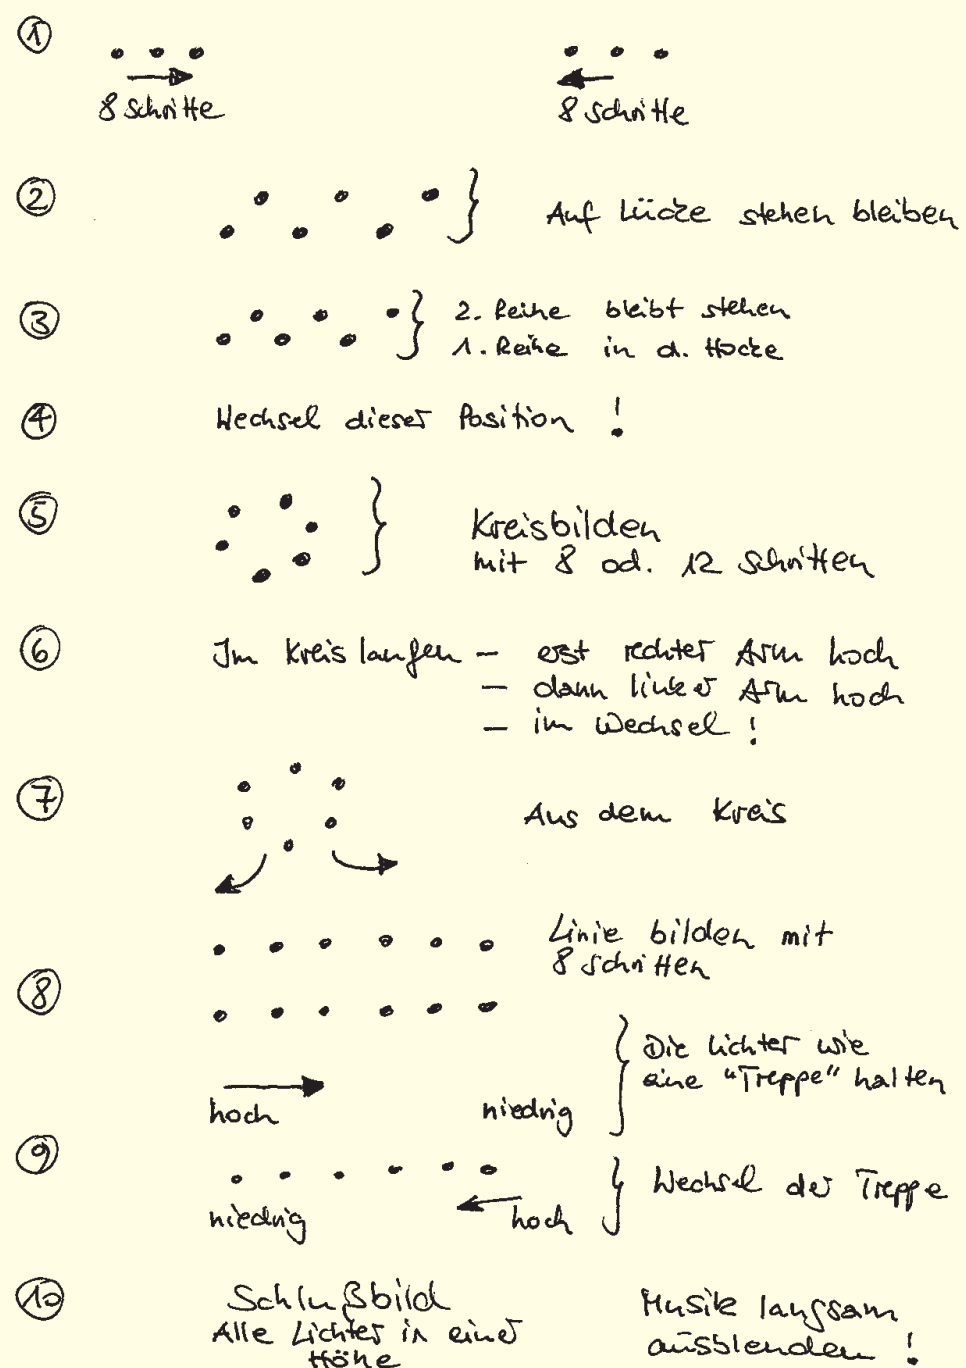 1
8 Schritte 8 Schritte
2 Auf Lücke stehen bleiben
3 2. Reihe bleibt stehen
1. Reihe in d. Hocke
4 Wechsel dieser Position !
5 Kreisbilden
mit 8 od. 12 Schritten
6 Im Kreis laufen – erst rechter Arm hoch
– dann linker Arm hoch
– im Wechsel !
7 Aus dem Kreis
Linie bilden mit
8 Schritten
8
Die Lichter wie
eine "Treppe" halten
hoch niedrig
9 Wechsel der Treppe
niedrig hoch
10 Schlußbild
Alle Lichter in einer
Höhe
Musik langsam
ausblenden !